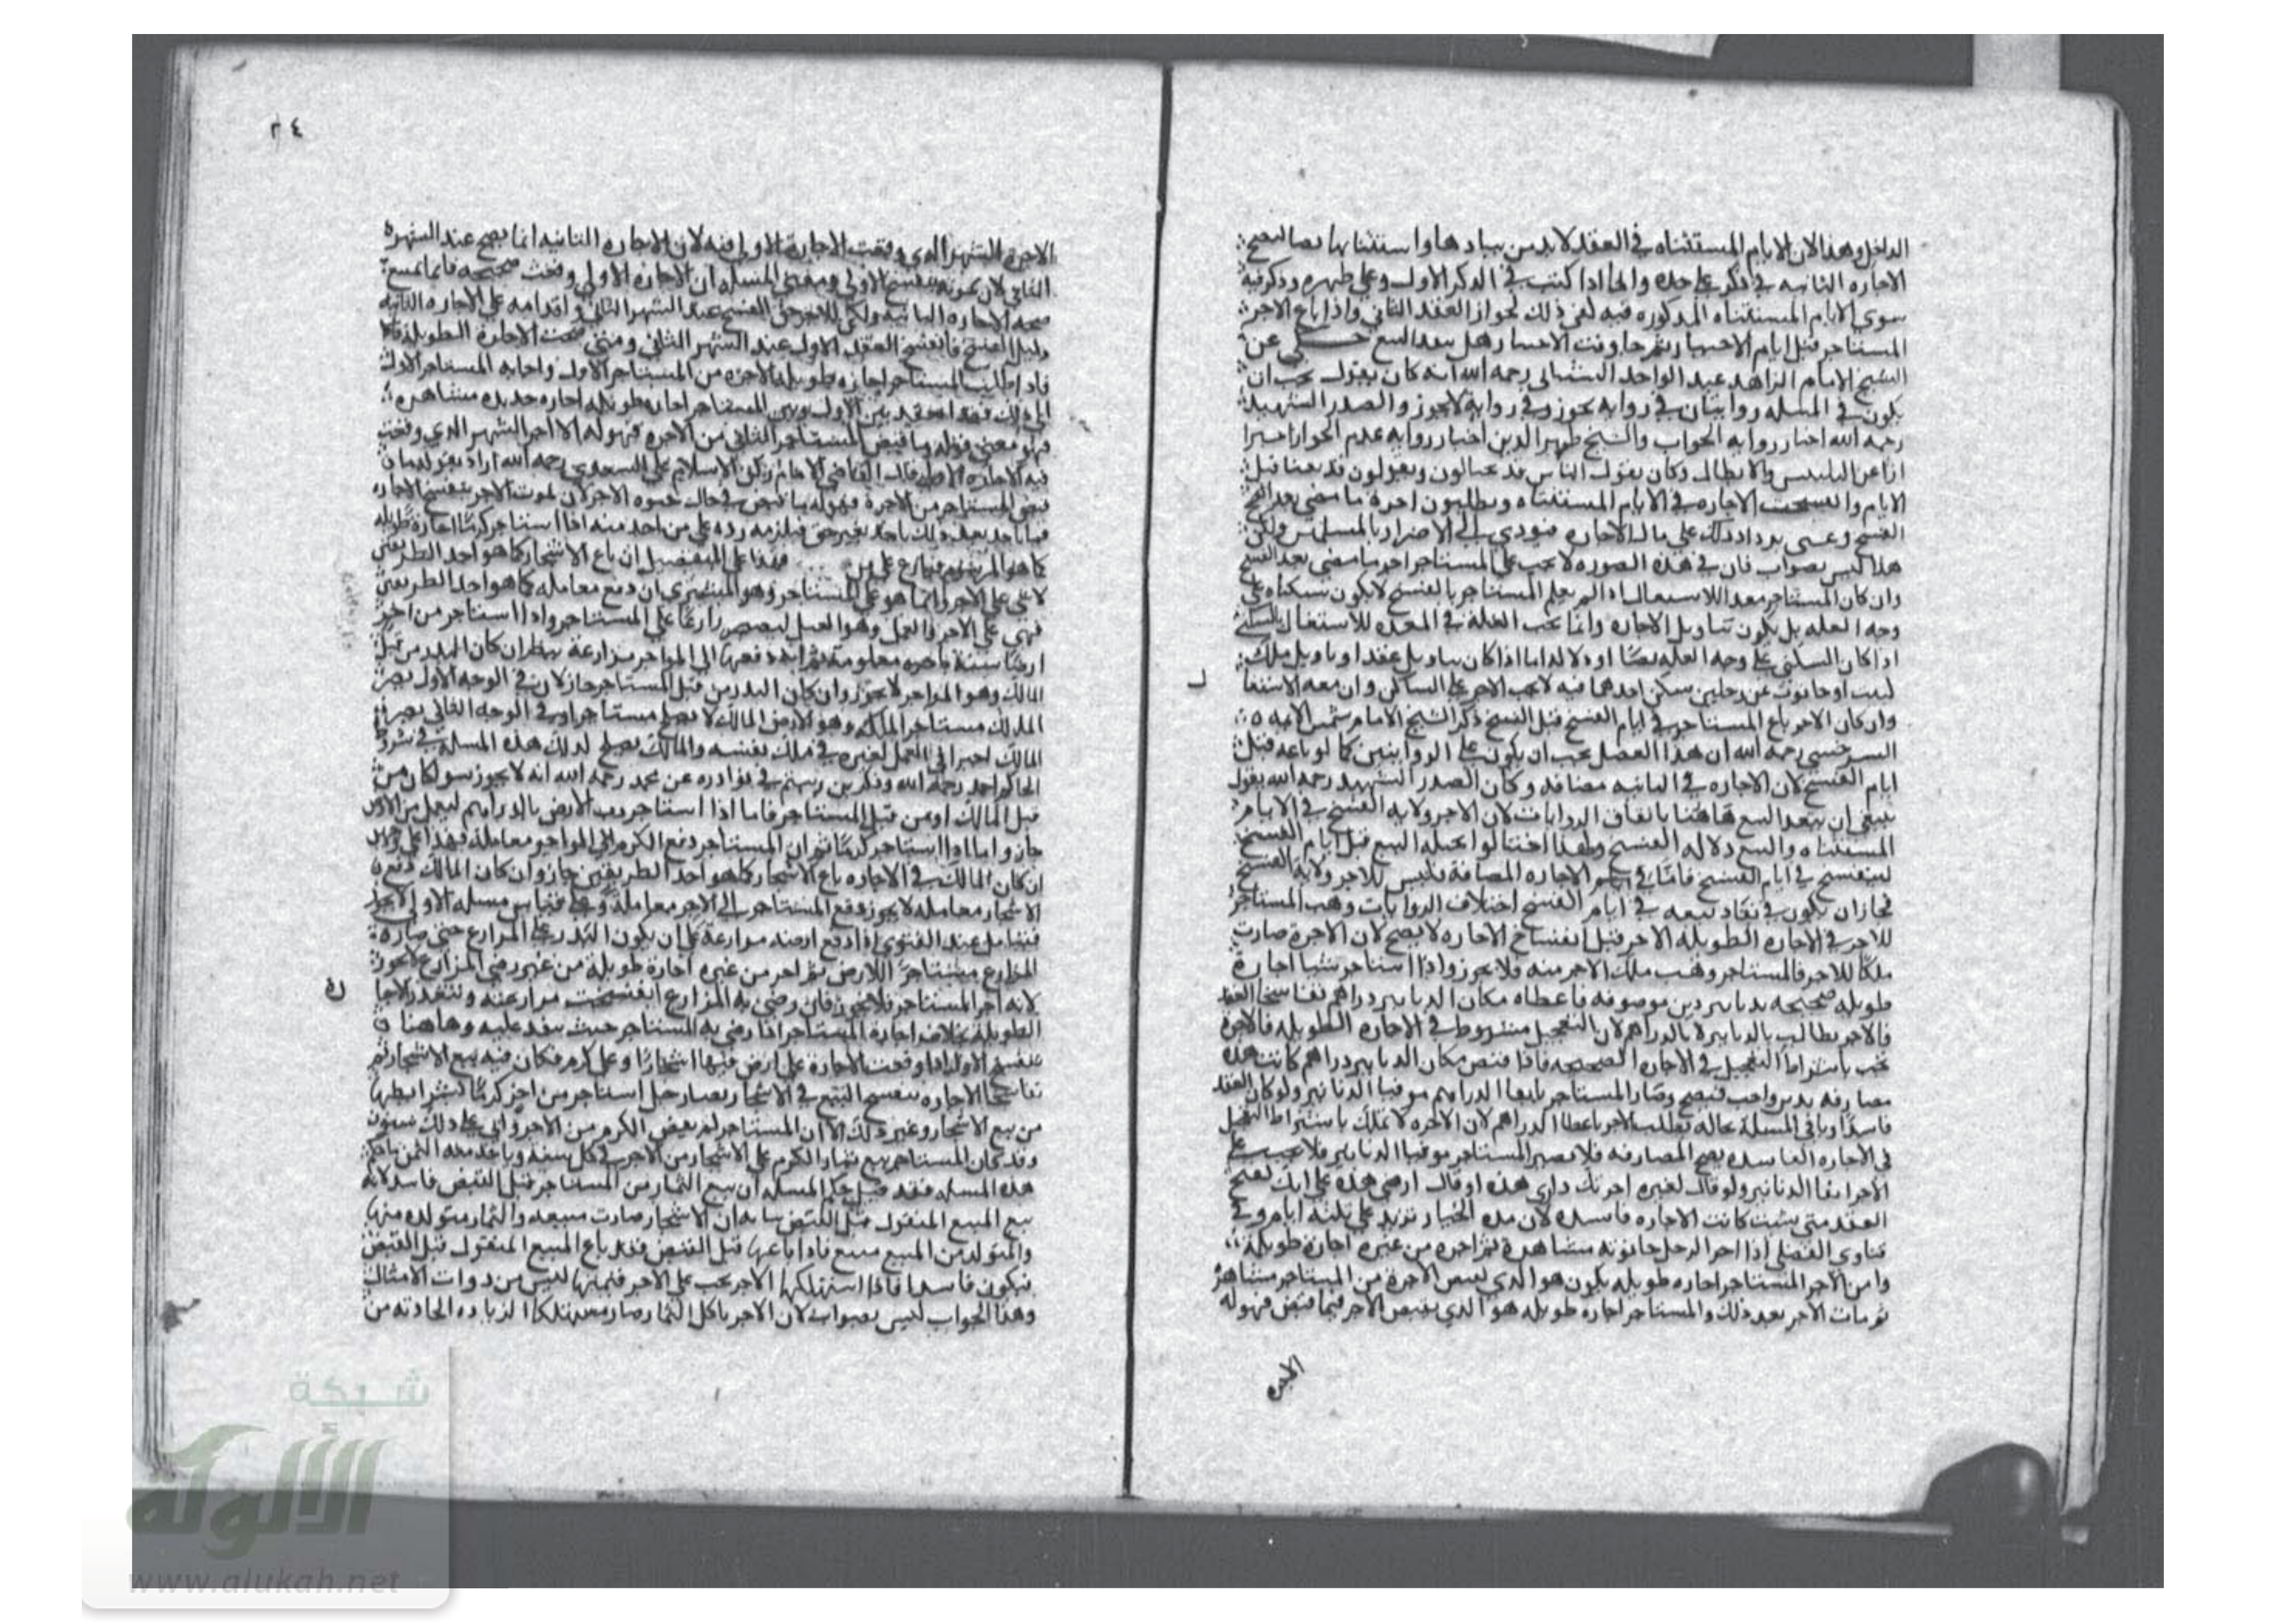 الداخل وهذا لان الايام المستثناه في العقد لابد من بيادها واستثنايها نصا ليصح
الاجاره الثانيه في ذكر على حده واما اذا كتب في الذكر الاول وعلى ظهره وذكر فيه
سوى الايام المستثناه المذكوره فيه لفى ذلك لجواز العقد الثاني واذا باع الاجر
المستاجر قبل ايام الاختيار ثم جا وقت الاختيار هل ينفذ البيع حكي عن
الشيخ الامام الزاهد عبد الواحد رحمه الله انه كان يقول يجب ان
يكون في المسله روايتان في روايه يجوز وفي رواية لايجوز والصدر الشهيد
رحمه الله اختار روايه الجواب والشيخ ظهير الدين اختار روايه عدم الجواز احترا
ازا عن التلبيس والابطال وكان يقول الناس قد يحتالون ويقولون قد بعنا قبل
الايام وانفسخت الاجاره في الايام المستثناه ويطلبون اجرة ما مضى بعد
الفسخ وعسى يزداد ذلك على مال الاجاره فيودي الى الاضرار بالمسلمين ولكن
هذا ليس بصواب فان في هذه الصوره لا يجب على المستاجر اجر ما مضى بعد الفسخ
وان كان المستاجر معد اللاستغلال اذا لم يعلم المستاجر بالفسخ لا يكون سكناه على
وجه الغله بل يكون بتاويل الاجاره وانما يجب الغلة في المعده للاستغلال بالسكنى
اذا كان السكنى على وجه الغله نصا او دلاله اما اذا كان بتاويل عقد او تاويل ملك
كبيت او حانوت بين رجلين سكن احدهما فيه لا يجب الاجر على الساكن وان معد للاستغلا
ل
وان كان الاجر باع المستاجر في ايام الفسخ قبل الفسخ ذكر الشيخ الامام شمس الايمه
السرخسي رحمه الله ان هذا الفصل يجب ان يكون على الروايتين كما لو باعه قبل
ايام الفسخ لان الاجاره في الثانيه مضافه وكان الصدر الشهيد رحمه الله يقول
ينبغي ان ينفذ البيع هاهنا باتفاق الروايات لان للاجر ولايه الفسخ في الايام
المستثناه والبيع دلاله الفسخ ولهذا احتالوا بحيله البيع قبل ايام الفسخ
لينفسخ في ايام الفسخ فاما في الاجاره المضافة فليس للاجر ولاية الفسخ
فجاز ان يكون في نفاد بيعه في ايام الفسخ اختلاف الروايات وهب المستاجر
للاجر في الاجاره الطويله الاجر قبل انفساخ الاجاره لا يصح لان الاجرة صارت
ملكا للاجر فالمستاجر وهب ملك الاجر منه فلا يجوز واذا استاجر شيا اجارة
طويله صحيحه بدنانير دين موصوفه فاعطاه مكان الدنانير دراهم تفاسخا العقد
فالاجر يطالب بالدنانير لا بالدراهم لان التعجيل مشروط في الاجاره الطويله فالاجرة
تجب باشتراط التعجيل في الاجاره الصحيحه فاذا قبض مكان الدنانير دراهم كانت هذه
مصارفه بدين واجب فيصح وصار المستاجر الدراهم موفيا الدنانير ولو كان العقد
فاسدا وباقي المسلة بحاله يطالب الاجر باعطا الدراهم لان الاجره لا تملك باشتراط التعجيل
في الاجاره الفاسده يصح المصارفه فلا يصير المستاجر موفيا الدنانير فلا يجب على
الاجر ايفا الدنانير ولو قال لغيره اجرتك داري هذه او قال ارضي هذه على انك تفسخ
العقد متى شئت كانت الاجاره فاسده لان مده الخيار تزيد على ثلثه ايام وفي
فتاوي الفضلي اذا اجر الرجل حانوته مشاهرة ثم اجره من غيره اجارة طويله
وامر الاجر المستاجر اجاره طويله يكون هو الذي يقبض الاجرة من المستاجر مشاهرة
ثم مات الاجر بعد ذلك والمستاجر اجاره طويله هو الذي يقبض الاجر فيما قبض فهو له
الاجره
٢٤
الاجرة للشهر الذي وقعت الاجارة الاولى فيه لان الاجاره الثانيه انما يصح عند الشهر
الثاني لان بموته ينفسخ الاولى ومعنى المسله ان الاجاره الاولى وقعت صحيحه فانما يمنع
صحه الاجاره الثانيه ولكن للاجر حق الفسخ عند الشهر الثاني واقدامه على الاجاره الثانيه
دليل الفسخ فانفسخ العقد الاول عند الشهر الثاني ومتى صحت الاجارة الطويله
فاذا طلب المستاجر اجاره طويله الاجره من المستاجر الاول واجابه المستاجر الاول
الى ذلك فقد انعقد بين الاول وبين المستاجر اجاره طويله اجاره جديده مشاهره
فهو معنى قوله وما قبض المستاجر الثاني من الاجره فهو له الا اجر الشهر الذي وقعت
فيه الاجاره قال القاضي الامام ركن الاسلام علي السعدي رحمه الله اراد بقوله ما
قبض المستاجر من الاجرة فهو له ما قبض في حال حيوه الاجر لان بموت الاجر ينفسخ الاجاره
فما ياخذ بعد ذلك ياخذ بغير حق فيلزمه رده على من اخذ منه اذا استاجر كرما اجارة طويله
كما هو المرسوم فهذا على التفصيل ان باع الاشجار كما هو احد الطريقين
لا شي على الاجر وانما هو على المستاجر وهو المشتري ان دفع معامله كما هو احد الطريقين
فهي على الاجر والعمل وهو العمل على المستاجر واذا استاجر من اخر
ارضا سنة باجره معلومة ثم انه دفعها الى المواجر مزارعة ينظر ان كان البذر من قبل
المالك وهو المواجر لا يجوز وان كان البذر من قبل المستاجر جاز لان في الوجه الاول يصير
المالك مستاجرا لملكه وهو الارض المالك لا يصلح مستاجرا وفي الوجه الثاني يصير
المالك اجيرا في العمل لغيره في ملك نفسه والمالك يصلح لذلك هذه المسلة في شروط
الحاكم احمد رحمه الله وذكر بن رستم في نوادره عن محمد رحمه الله انه لا يجوز سوا كان من
قبل المالك او من قبل المستاجر فاما اذا استاجر رب الارض بالدراهم ليعمل في الارض
جاز واما اذا استاجر كرما ثم ان المستاجر دفع الكرم الى المواجر معامله فهذا على وجهين
ان كان المالك في الاجاره باع الاشجار كما هو احد الطريقين جاز وان كان المالك دفع
الاشجار معامله لا يجوز دفع المستاجر الى الاجر معاملة وعلى قياس مسله الاولى
فيتامل عند الفتوى اذا دفع ارضه مزارعة على ان يكون البذر على المزارع حتى صار
المزارع مستاجرا للارض ثم اجر من غيره اجارة طويلة من غير رضى المزارع لا يجوز
لانه اجر المستاجر فلا يجوز فان رضي به المزارع انفسخت مزارعته وتنفذ الاجا
رة
الطويلة بخلاف اجارة المستاجر اذا رضي به المستاجر حيث ينفذ عليه وهاهنا
ينفسخ الاول اذا وقعت الاجارة على ارض فيها اشجار او على كرم فكان فيه بيع الاشجار ثم
تفاسخا الاجاره ينفسخ البيع في الاشجار رجل استاجر من اخر كرما بشرايطها
من بيع الاشجار وغير ذلك الا ان المستاجر لم يقبض الكرم من الاجر واتى على ذلك سنون
وقد كان المستاجر يبيع ثمار الكرم على الاشجار من الاجر في كل سنة وياخذ منه الثمن
هذه المسله فقد قيل حكم المسله ان بيع الثمار من المستاجر قبل القبض فاسد لانه
بيع المبيع المنقول قبل القبض بيانه ان الاشجار صارت مبيعه والثمار متولده منها
والمتولد من المبيع مبيع فاذا باعها قبل القبض فقد باع المبيع المنقول قبل القبض
فيكون فاسدا فاذا استهلكها الاجر يجب على الاجر قيمتها لانه ليس من ذوات الامثال
وهذا الجواب ليس بصواب لان الاجر باكل الثمار صار مستهلكا الزياده الحادثه من
شبكة
الألوكة
www.alukah.net